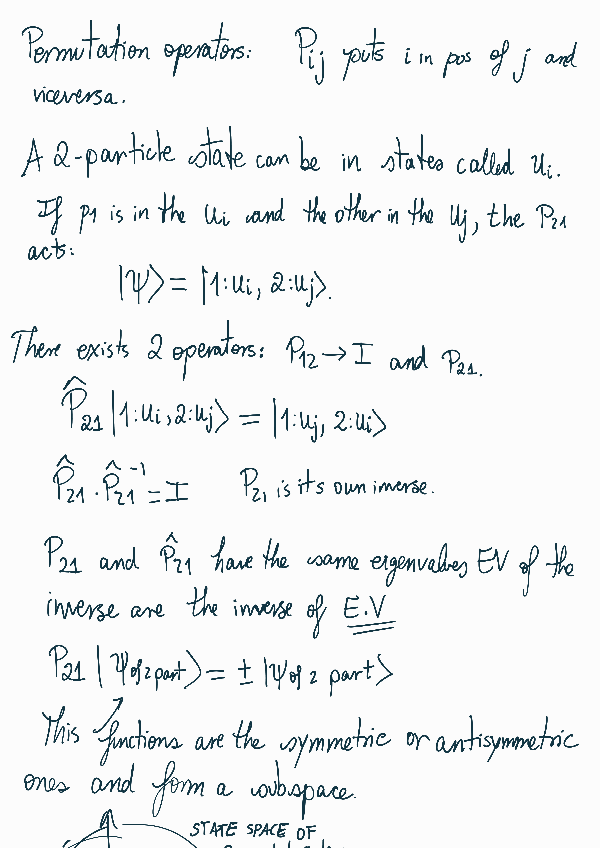 Permutation operators: Pij puts i in pos of j and
viceversa.
A 2-particle state can be in states called ui.
If p1 is in the ui and the other in the uj, the P21
acts:
|Ψ⟩ = |1:ui, 2:uj⟩.
There exists 2 operators: P12 → I and P21.
P̂21 |1:ui, 2:uj⟩ = |1:uj, 2:ui⟩
P̂21 · P̂21⁻¹ = I P21 is its own inverse.
P21 and P̂21 have the same eigenvalues EV of the
inverse are the inverse of E.V
P21 |Ψ of 2 part⟩ = ± |Ψ of 2 part⟩
This functions are the symmetric or antisymmetric
ones and form a subspace.
STATE SPACE OF